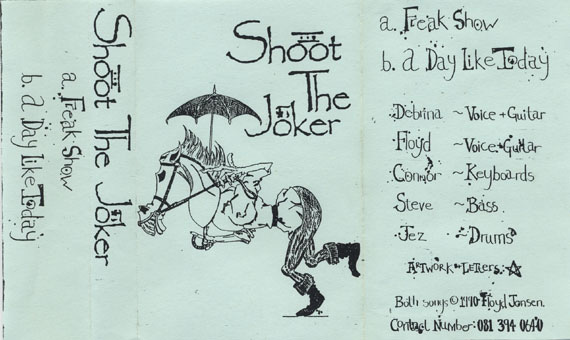 Shoot The Joker
a. Freak Show
b. a Day Like Today
Shoot
The
Joker
a. Freak Show
b. a Day Like Today
Debrina ~ Voice + Guitar
Floyd ~ Voice + Guitar
Connor ~ Keyboards
Steve ~ Bass
Jez ~ Drums
Artwork + Letters:
Both songs © 1990 Floyd Jansen.
Contact Number: 081 394 0640